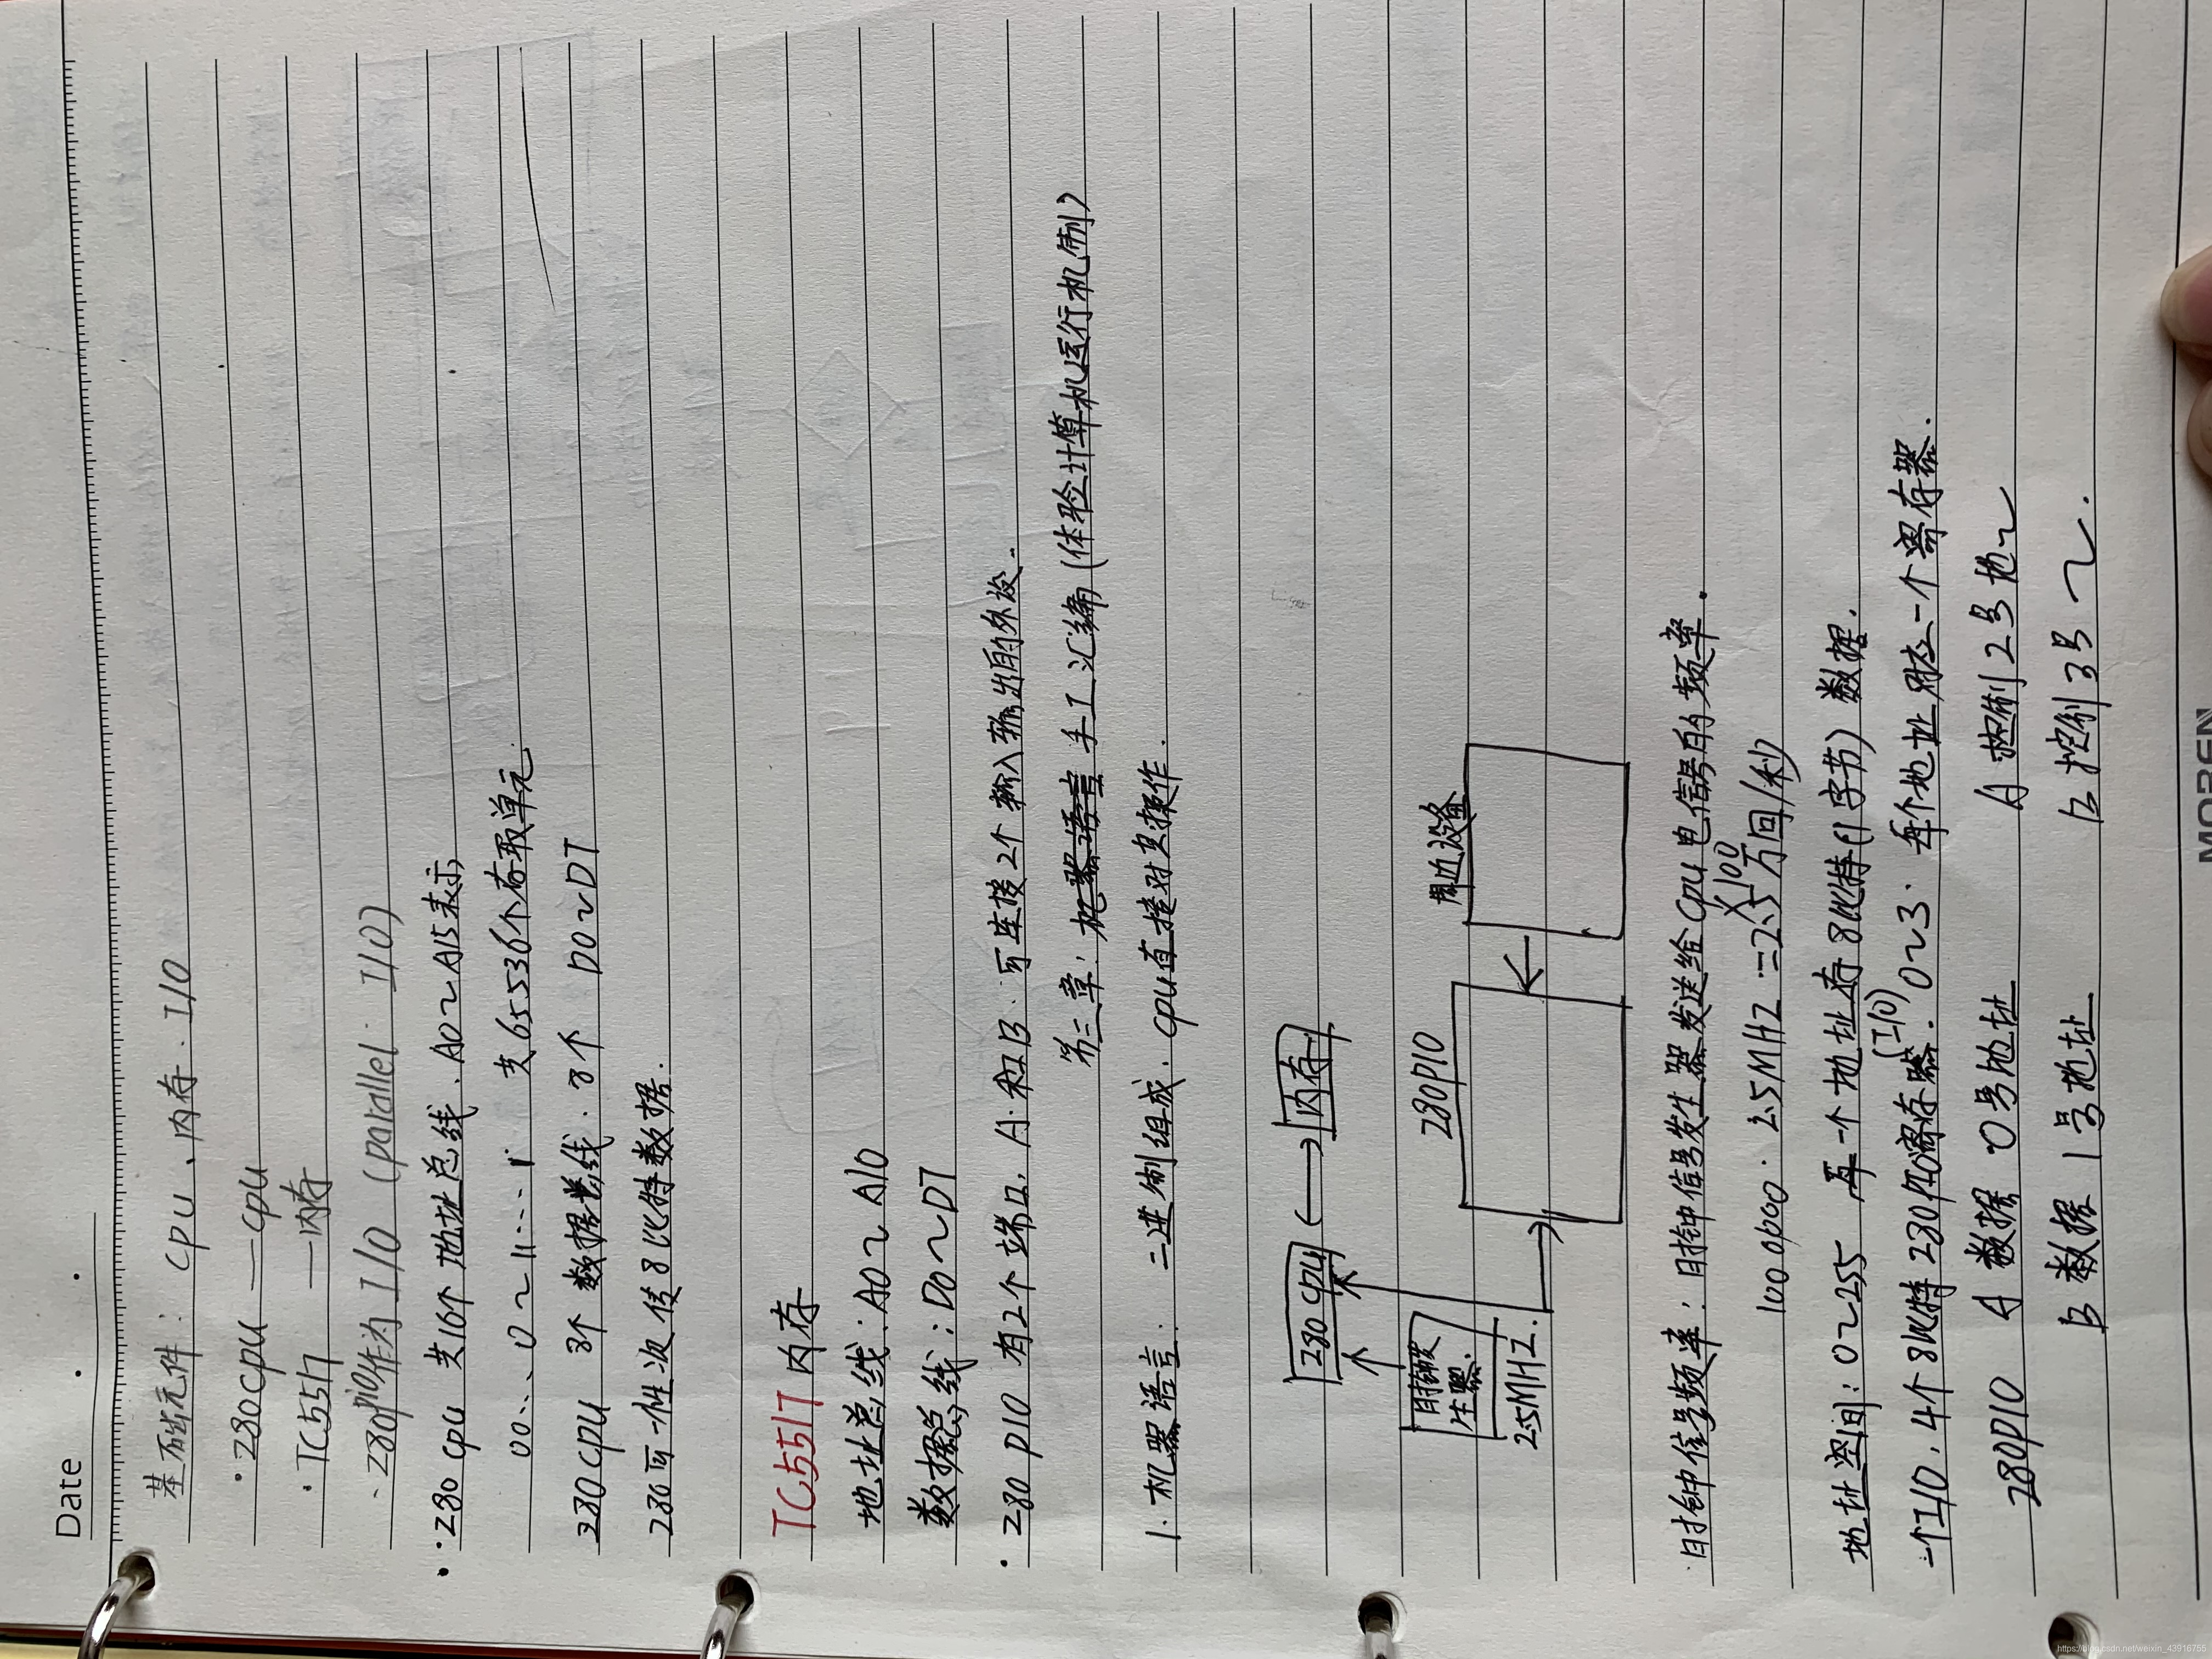 Date
基础元件: CPU、内存. I/O
·Z80CPU —CPU
·TC5517 —内存
·Z80pio作为I/O (parallel I/O)
·Z80 CPU 共16个地址总线. A0~A15表示,
00...0~11...1 共65536个存取单元.
Z80CPU 8个数据总线. 8个 D0~D7
Z80可一性次传8比特数据.
TC5517 内存
地址总线: A0~A10
数据总线: D0~D7
·Z80 PIO 有2个端口, A和B. 可连接2个输入输出的外设.
第二章: 手工汇编(体验计算机运行机制)
1. 机器语言: 二进制组成. CPU直接对其操作.
Z80 CPU
内存
时钟发
生器.
2.5MHZ.
Z80PIO
周边设备
时钟信号频率: 时钟信号发生器发送给CPU电信号的频率.
1000000. 2.5MHZ =2.5万回/秒
X100
地址空间: 0~255 一个地址存8比特(1字节)数据.
一个I/O, 4个8比特Z80PIO寄存器. 0~3. 每个地址对应一个寄存器.
(I/O)
Z80PIO A 数据 0号地址 A 控制2号地~
B 数据 1号地址 B 控制3号~.
MOREN
https://blog.csdn.net/weixin_43916755